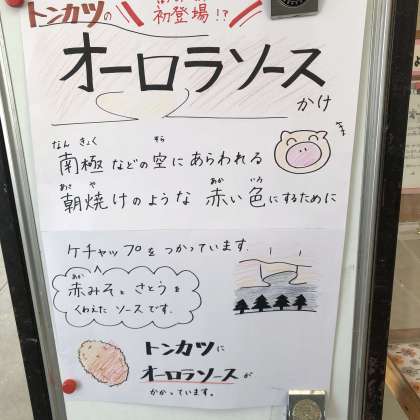 トンカツの 初登場!?
オーロラソース
かけ
なん きょく そら
南極などの空にあらわれる
あさ や あか いろ
朝焼けのような 赤い色にするために
ケチャップをつかっています.
あか
赤みそとさとうを
くわえた ソースです.
トンカツに
オーロラソースが
かかっています。